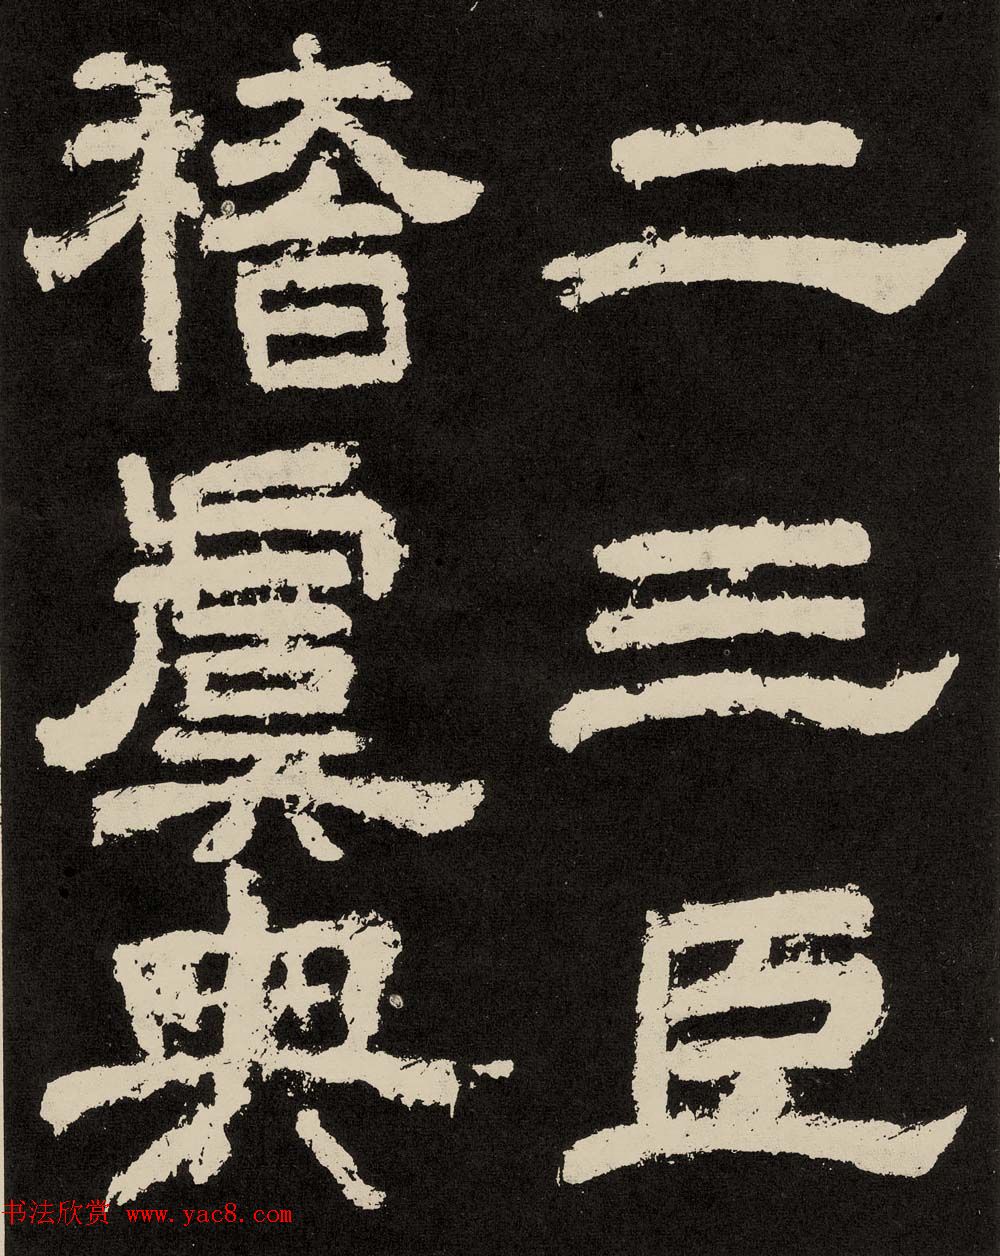 二三臣
稽虞典
书法欣赏 www.yac8.com